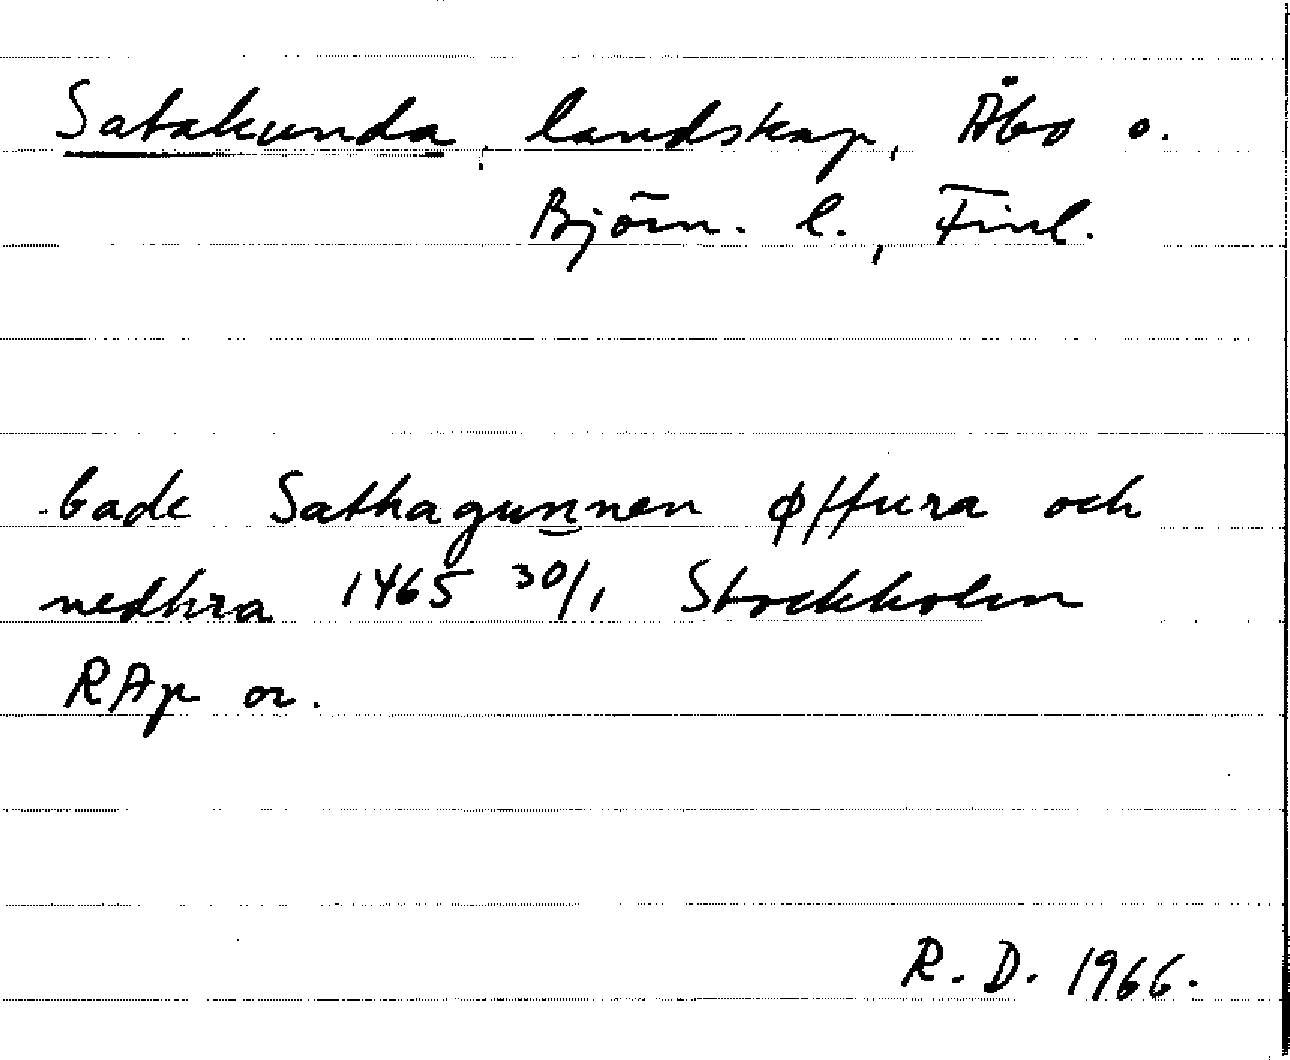 Satakunda, landskap, Åbo o.
Björn. l., Finl.
bade Sathagunnen øffura och
nedhra 1465 30/1 Stockholm
RAp or.
R. D. 1966.